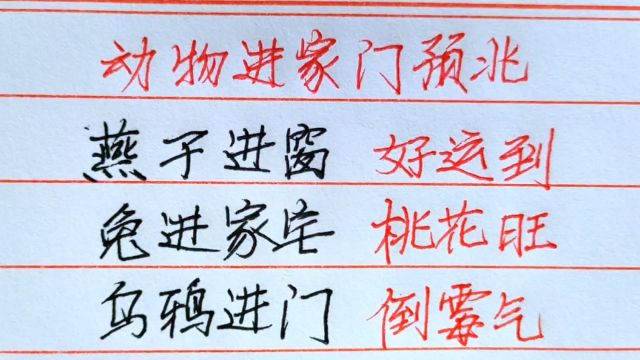 动物进家门预兆
燕子进窗 好运到
兔进家宅 桃花旺
乌鸦进门 倒霉气